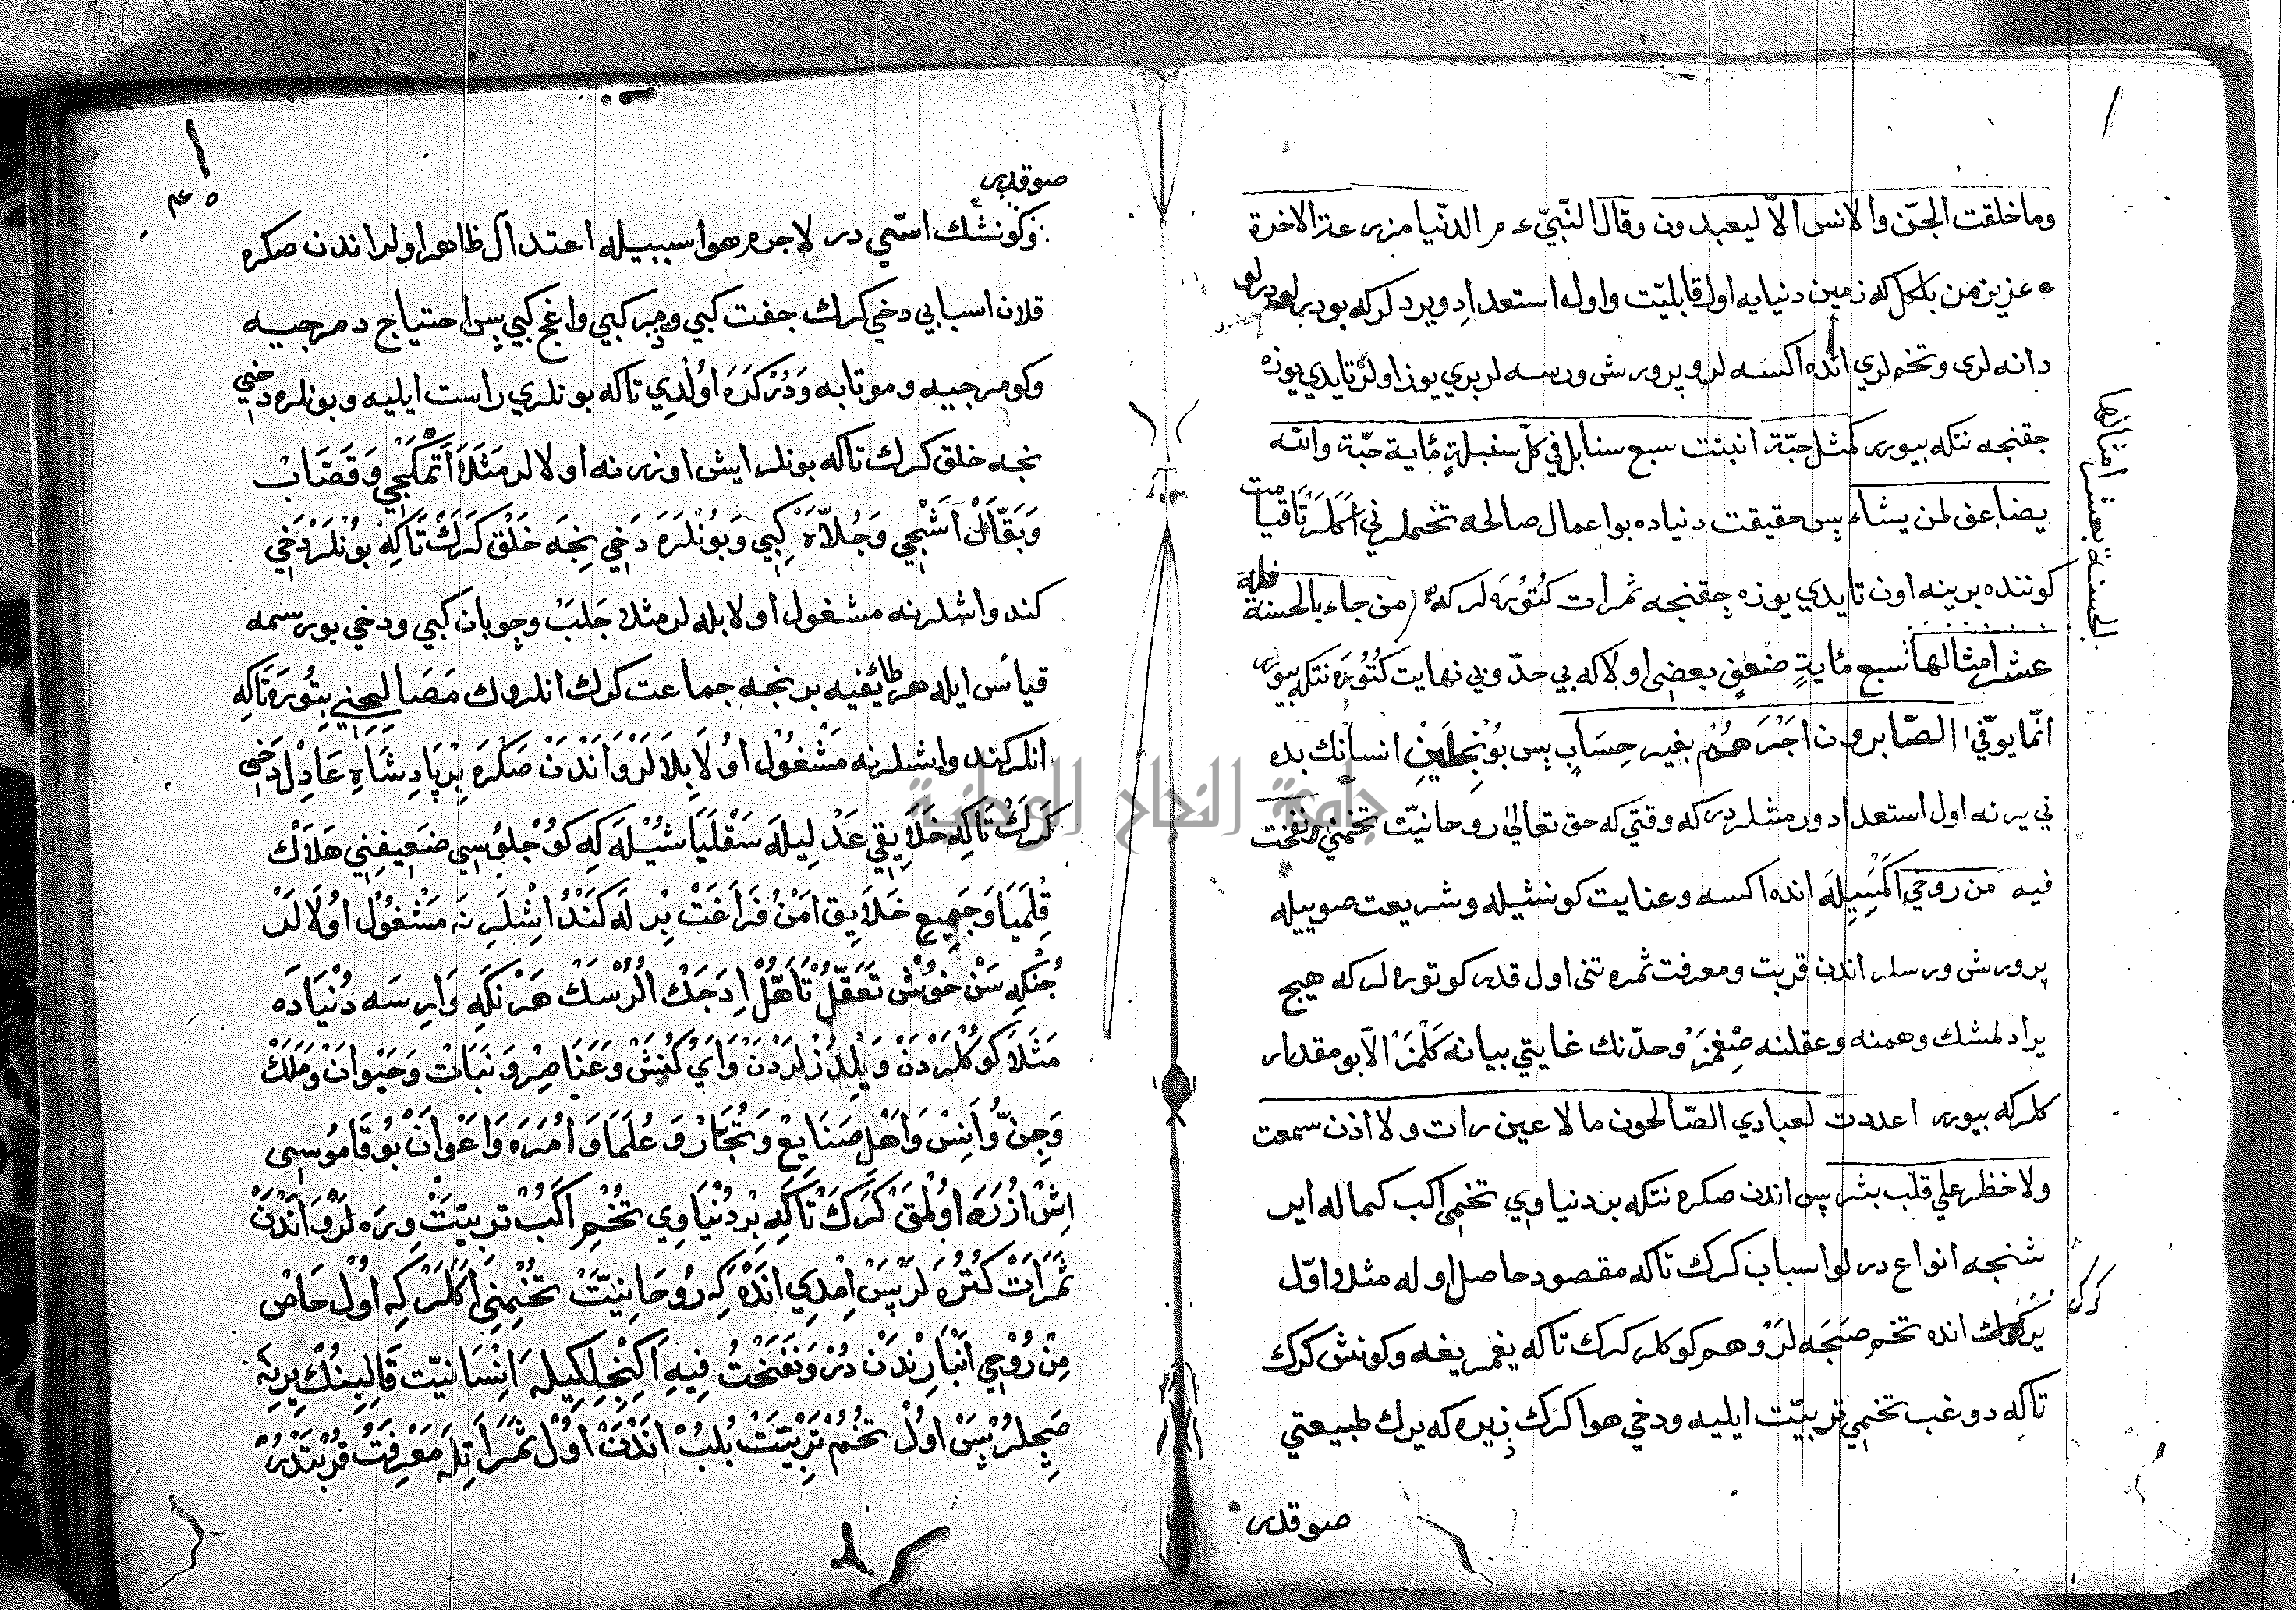 وما خلقت الجن والانس الّا ليعبدون وقال النّبيّ ء م الدّنيا مزرعة الاخرة
عزيز من بلكل كه زمين دنيايه اول قابليّت واول استعداد ويرد كركه بودرلو
دانه لرى وتخملري انده اكسه لر و پرورش ورسه لر بري يوز اولر تا يدي يوزه
جقنجه نتكه بيورر كمثل حبّة انبتت سبع سنابل في كلّ سنبلة مئاية حبّة والله
يضاعف لمن يشاء پس حقيقت دنياده بو اعمال صالحه تخملرني اكلر تا قيامت
كوننده برينه اون تا يدي يوزه جقنجه ثمرات كتوره لر كه من جاء بالحسنة فله
عشر امثالها تسبع مئاية ضعف بعضى اولا كه بي حدّ وبي نهايت كتوره نتكه بيورر
انّما يوفّي الصّابرون اجرهم بغير حساب پس بونجلين انسانك بده
ني يرنه اول استعداد ورمشلردر كه وقتي كه حق تعالى روحانيّت تخمني ونفخت
فيه من روحي اكمسيله انده اكسه وعنايت كونشيله وشريعت صوييله
پرورش ورسلر اندن قربت ومعرفت ثمره تنى اول قدر كوتوره لر كه هيچ
يرادلمشك وهمنه وعقلنه صغمز وحدّنك غايتي بيانه كلمز الّا بو مقدار
كلر كه بيورر اعددت لعبادي الصّالحون ما لا عين رات ولا اذن سمعت
ولا خطر علي قلب بشر پس اندن صكره نتكه بر دنياوي تخمي اكب كماله اير
شنجه انواع درلو اسباب كرك تا كه مقصود حاصل اوله مثلا اوّل
ير كرك انده تخم صجه لر وهم كوكلر كرك تا كه يغمر يغه وكونش كرك
تا كه دوغب تخمي تربيّت ايليه ودخي هوا كرك زيره كه يرك طبيعتي
صوقدر
الحسنة بعشر امثالها
كرك
صوقدر
وكونشك اسّي در لاجرم هوا سببيله اعتدال ظاهر اولر اندن صكره
قلان اسبابي دخي كرك جفت كبي ودمر كبي واغج كبي پس احتياج دمرجيه
وكومرجيه و موتابه ودركره اولدي تا كه بونلري راست ايليه وبونلره دخي
نجه خلق كرك تا كه بونلر ايش اوزرنه اولالر مثلا اتمكجي وقصّاب
وبقّال اشجي وجلاه كبي وبونلره دخي نجه خلق كرك تا كه بونلر دخي
كندو اشلرنه مشغول اولابله لر مثلا جلب وچوبان كبي ودخي بو رسمه
قياس ايله هر طائفيه بر نجه جماعت كرك انلروك مصالحني بتوره تا كه
انلر كندو اشلرنه مشغول اولا بلالر و اندن صكره بر پادشاه عادل دخي
كرك تا كه خلايقي عدليله سقليا شيله كه كوجلوسي ضعيفني هلاك
قلميا وجميع خلايق امن فراغت برله كندو اشلرنه مشغول اولالر
جنكه سن خوش تعقّل تاهّل ادجك الرسك هر نكه وارسه دنياده
مثلا كوكلردن ويلدزلردن واي كنش وعناصر ونبات وحيوان وملك
وجنّ وانس واهل صنايع وتجّار وعلما وامره واعوان بو قاموسى
اش ازره اولمق كرك تا كه بر دنياوي تخم اكب تربيّت ويره لر و اندن
ثمرات كتره لر پس امدي انده كه روحانيّت تخمني اكلر كه اول خاص
من روحي انبارندن در ونفخت فيه اكنجلكيله انسانيّت قالبنك يرينه
صجلر پس اول تخم تربيّت بلب اندن اول ثمراتله معرفت قربتدر
جامعة النجاح الوطنية